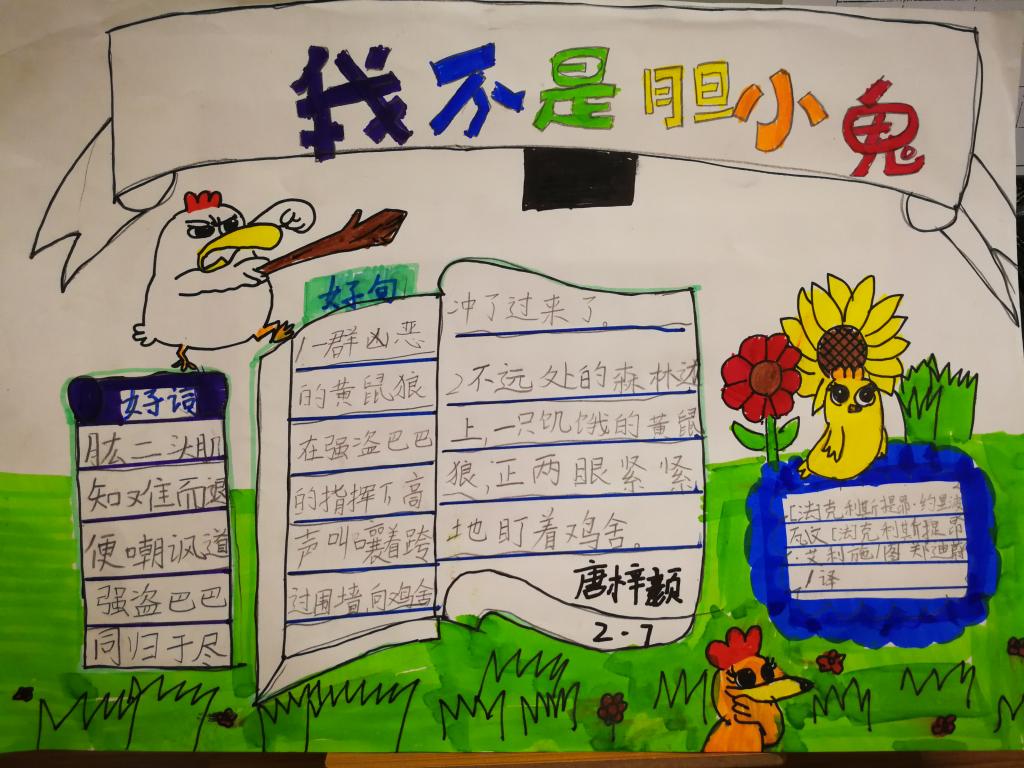 我不是胆小鬼
好词
肱二头肌
知难而退
便嘲讽道
强盗巴巴
同归于尽
好句
1一群凶恶
的黄鼠狼
在强盗巴巴
的指挥下高
声叫嚷着跨
过围墙,向鸡舍
冲了过来了。
2不远处的森林边
上,一只饥饿的黄鼠
狼,正两眼紧紧
地盯着鸡舍。
唐梓颢
2·7
[法]克利斯提昂·约里波
瓦文[法]克利斯提昂
·艾利施/图 郑迪蔚
/译